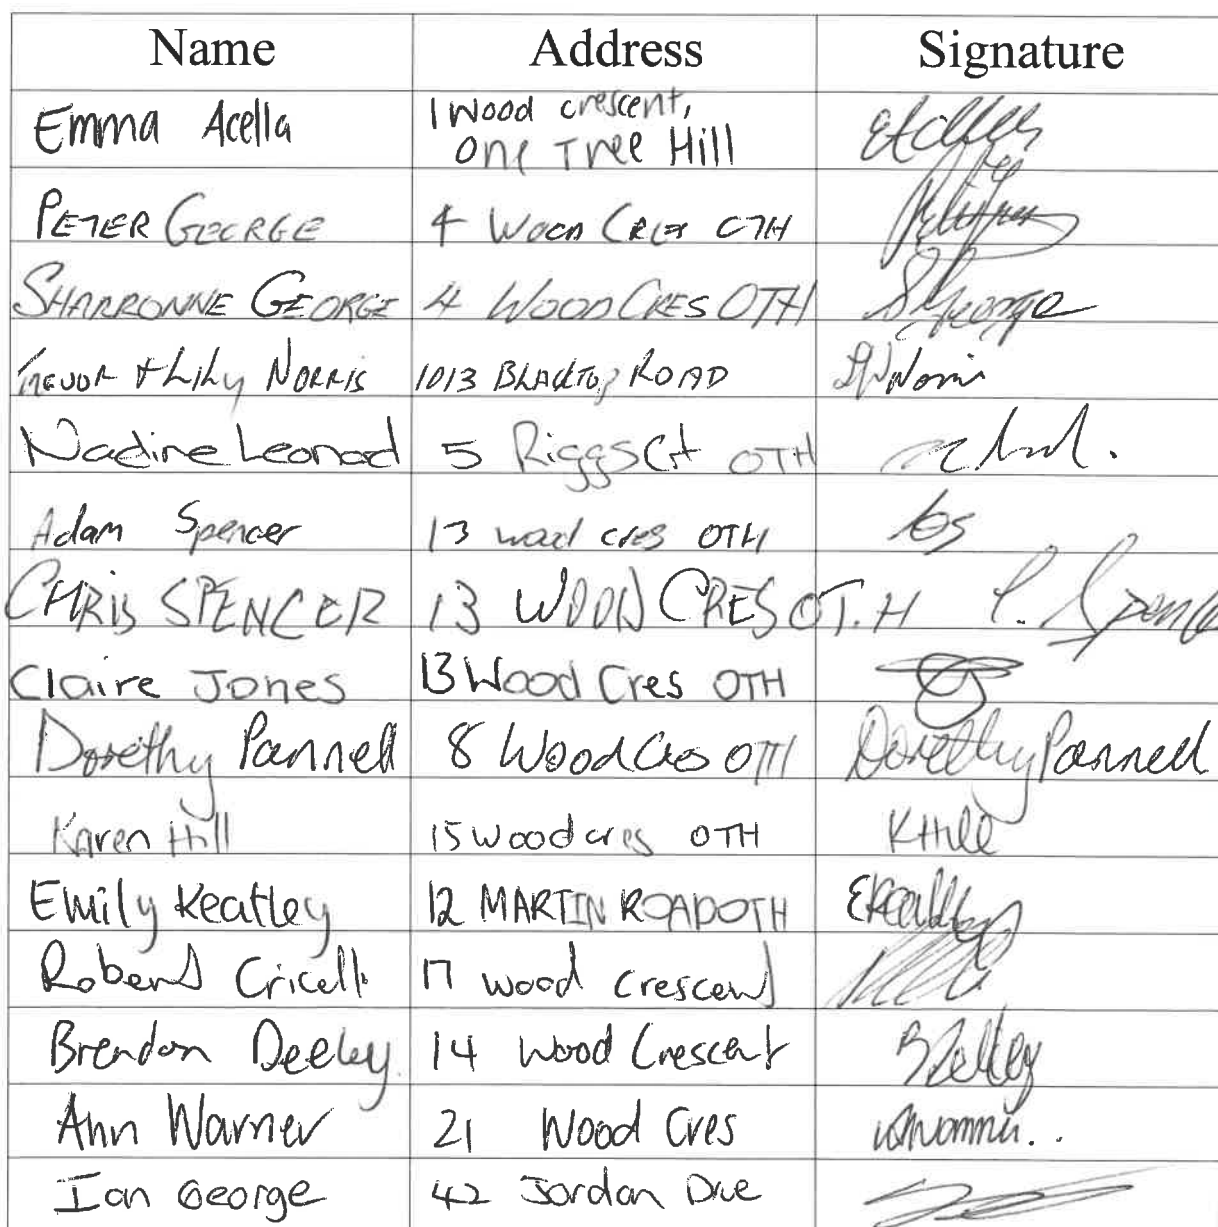 Name Address Signature
Emma Acella 1 Wood crescent,
One Tree Hill
PETER GEORGE 4 WOOD CRES OTH
SHARRONNE GEORGE 4 WOOD CRES OTH S George
TREVOR & LiLy NORRIS 1013 BLACKTOP ROAD Norris
Nadine Leonard 5 Riggs Ct OTH
Adam Spencer 13 wood cres OTH
CHRIS SPENCER 13 WOOD CRES O.T.H C. Spencer
Claire Jones 13 Wood Cres OTH
Dorethy Pannell 8 Wood Cres OTH Dorethy Pannell
Karen Hill 15 Wood cres OTH K Hill
Emily Keatley 12 MARTIN ROAD OTH EKeatley
Robert Cricelli 17 wood crescent
Brendon Deeley 14 Wood Crescent
Ann Warner 21 Wood Cres
Ian George 42 Jordan Drve